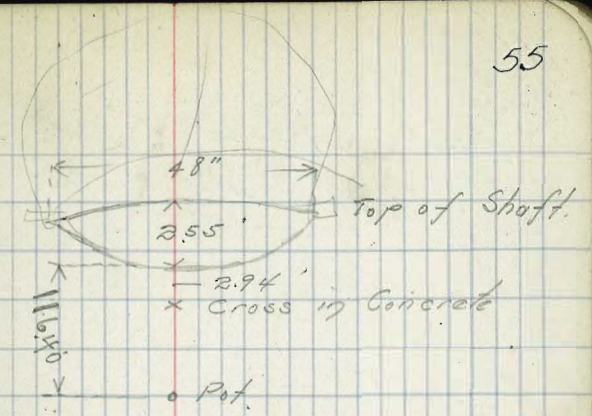 55
48"
Top of Shaft.
2.55
2.94
Cross in Concrete
Pot